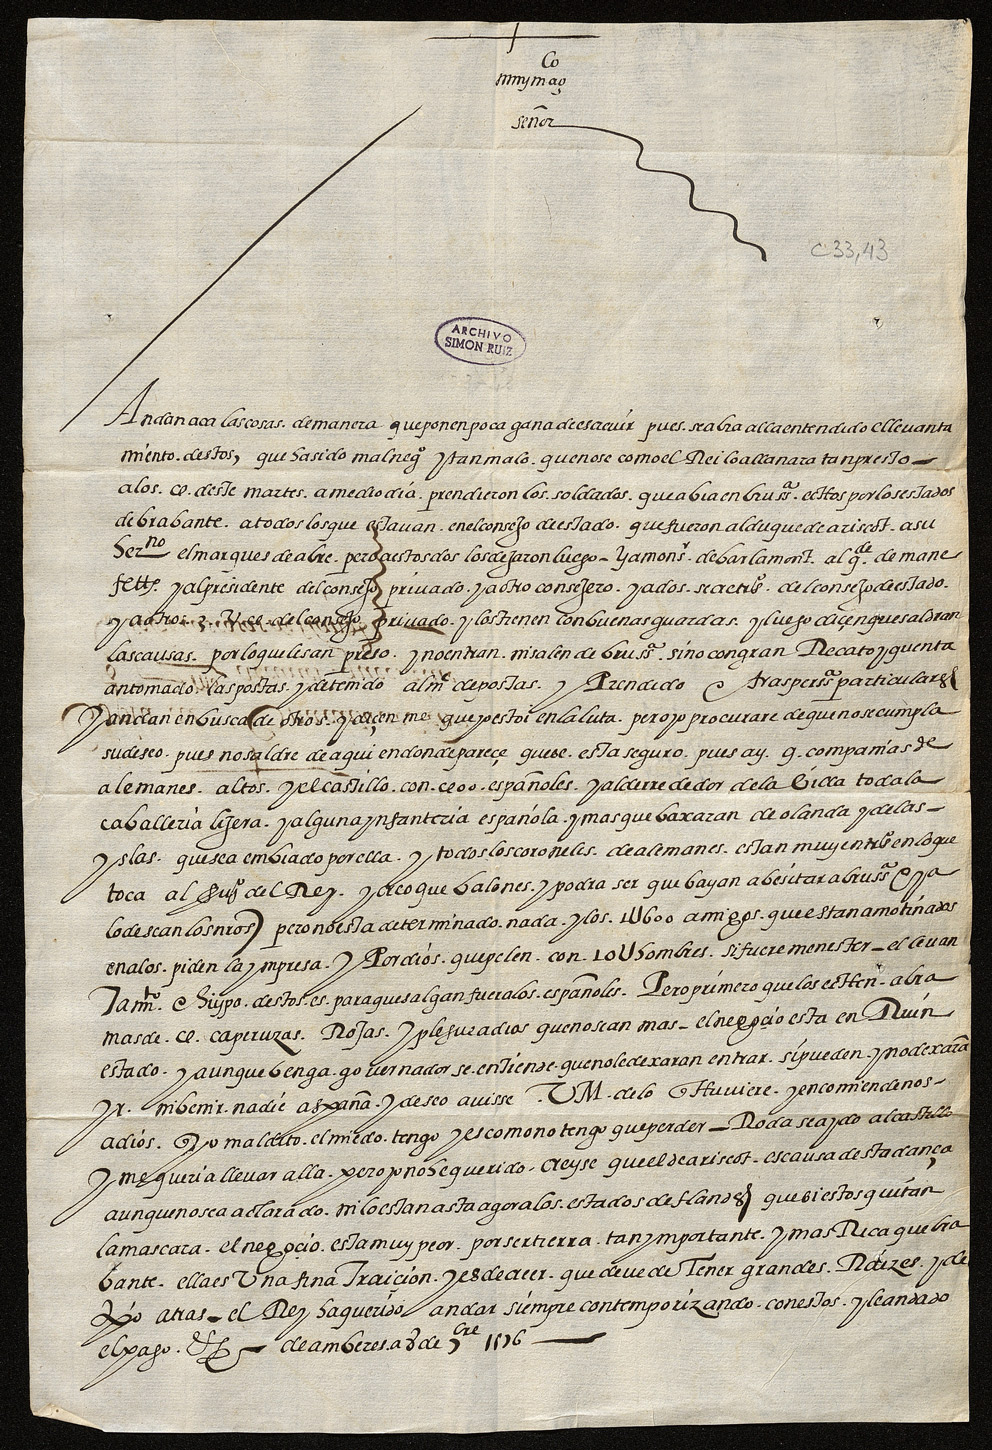 Co
muy mag
señor
C 33,43
ARCHIVO
SIMON RUIZ
Andan aca las cosas. de manera que ponen poca gana de escriuir pues. se abra alla entendido ellevanta
miento. destos, que hasido mal negº y tan malo. que nose como el Rei lo allanara tan presto
alos. de deste martes. a mediodia. prendieron los. soldados. que abia en bruss.as echos por los estados
de brabante. a todos los que estauan. en el consejo de estado. que fueron al duque de ariscot. a su
herno el marques de abre. pero aestos dos los dejaron luego yamonsr. de barlamont. al qde. de mane
felt. y al presidente del consejo privado. y aotro consejero. y ados. secretrs. del consejo de estado.
y aotros 2. del consejo privado. y los tienen con buenas guardas. y luego diçen que sabran
las causas. por lo que les an preso. y no entran. ni salen de bruss.as sino con gran Recato y quenta
an tomado las postas. y detenido al mº de postas. y Prendido otras perss.as particulares
y andan en busca de otros. y diçen me que yo estoi en la luta. pero yo procurare de que no se cumpla
su deseo. pues no saldre de aqui en donde pareçe que se. esta seguro. pues ay. 9. compañias de
alemanes. altos. y el castillo. con. españoles. y alderrededor de la billa toda la
caballeria lijera. y alguna ynfanteria española. y mas que baxaran de olanda y de las
yslas. que sea embiado por ella. y todos los coroneles. de alemanes. estan muy entrs. en lo que
toca al del Rey. y aco que balones. y podra ser que bayan a besitar a bruss.as ya
lo desean los nros) pero no esta determinado. nada. y los. 1U600 amigos. que estan amotinados
en alos. piden la ympresa. y Por dios. que pelen. con. 10U hombres. si fuere menester el levan
tamto. destos. es. para que salgan fuera los. españoles. Pero primero que los echen. abra
mas de. caperuzas. Rojas. y plegue a dios que no sean mas el negoçio esta en Ruin
estado. y aunque benga. governador se. entiende. que no le dexaran entrar. si pueden. y no dexaran
yr. ni benir. nadie a españa. y deseo auisse. V M. de lo q̃ Huviere. y encomiendenos
a dios. yo maldito. el miedo. tengo y es como no tengo que perder Roda sea ydo al castillo
y me queria llevar alla. pero yo no he querido. creyse que el de ariscot. es causa desta dança
aunque no sea aclarado. ni lo estan asta agora los. estados de flandes que si estos quitan
la mascara. el negoçio. esta muy peor. por ser tierra. tan ymportante. y mas Rica que bra
bante. ella es Una fina Traiçion. y es de creer. que deve de Tener grandes. Raizes. y de
atras el Rey ha querido andar siempre contemporizando. con estos. y le an dado
el pago. de amberes. a 8 de 7bre 1576